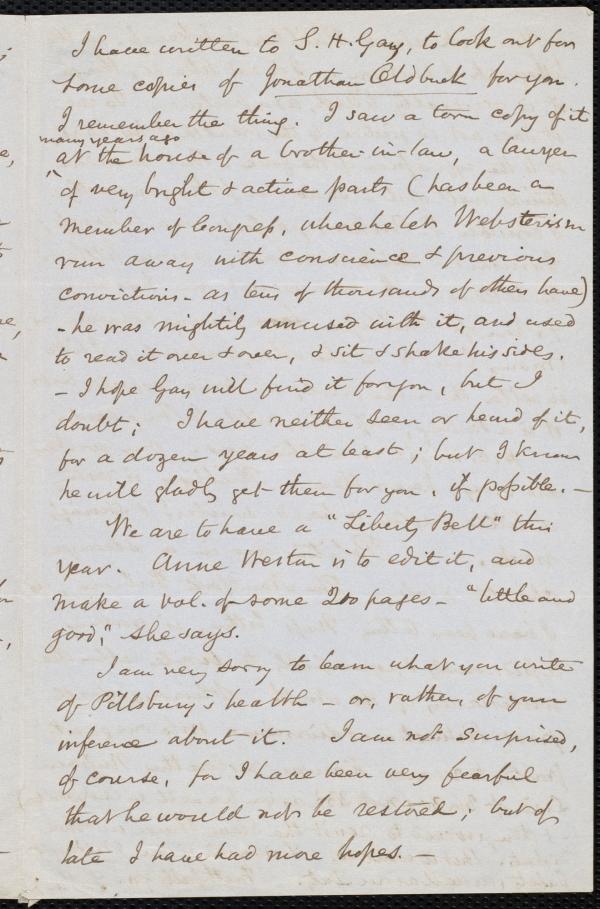 I have written to S. H. Gay, to look out for
some copies of Jonathan Oldbuck for you.
I remember the thing. I saw a torn copy of it
many years ago
at the house of a brother-in-law, a lawyer
of very bright & active parts (has been a
member of Congress, where he let Websterism
run away with conscience & previous
convictions - as tens of thousands of others have)
- he was mightily amused with it, and used
to read it over & over, & sit & shake his sides.
- I hope Gay will find it for you, but I
doubt; I have neither seen or heard of it,
for a dozen years at least; but I know
he will gladly get them for you, if possible. -
We are to have a "Liberty Bell" this
year. Anne Weston is to edit it, and
make a vol. of some 200 pages - "little and
good," she says.
I am very sorry to learn what you write
of Pillsbury's health - or, rather, of your
inference about it. I am not surprised,
of course, for I have been very fearful
that he would not be restored; but of
late I have had more hopes. -